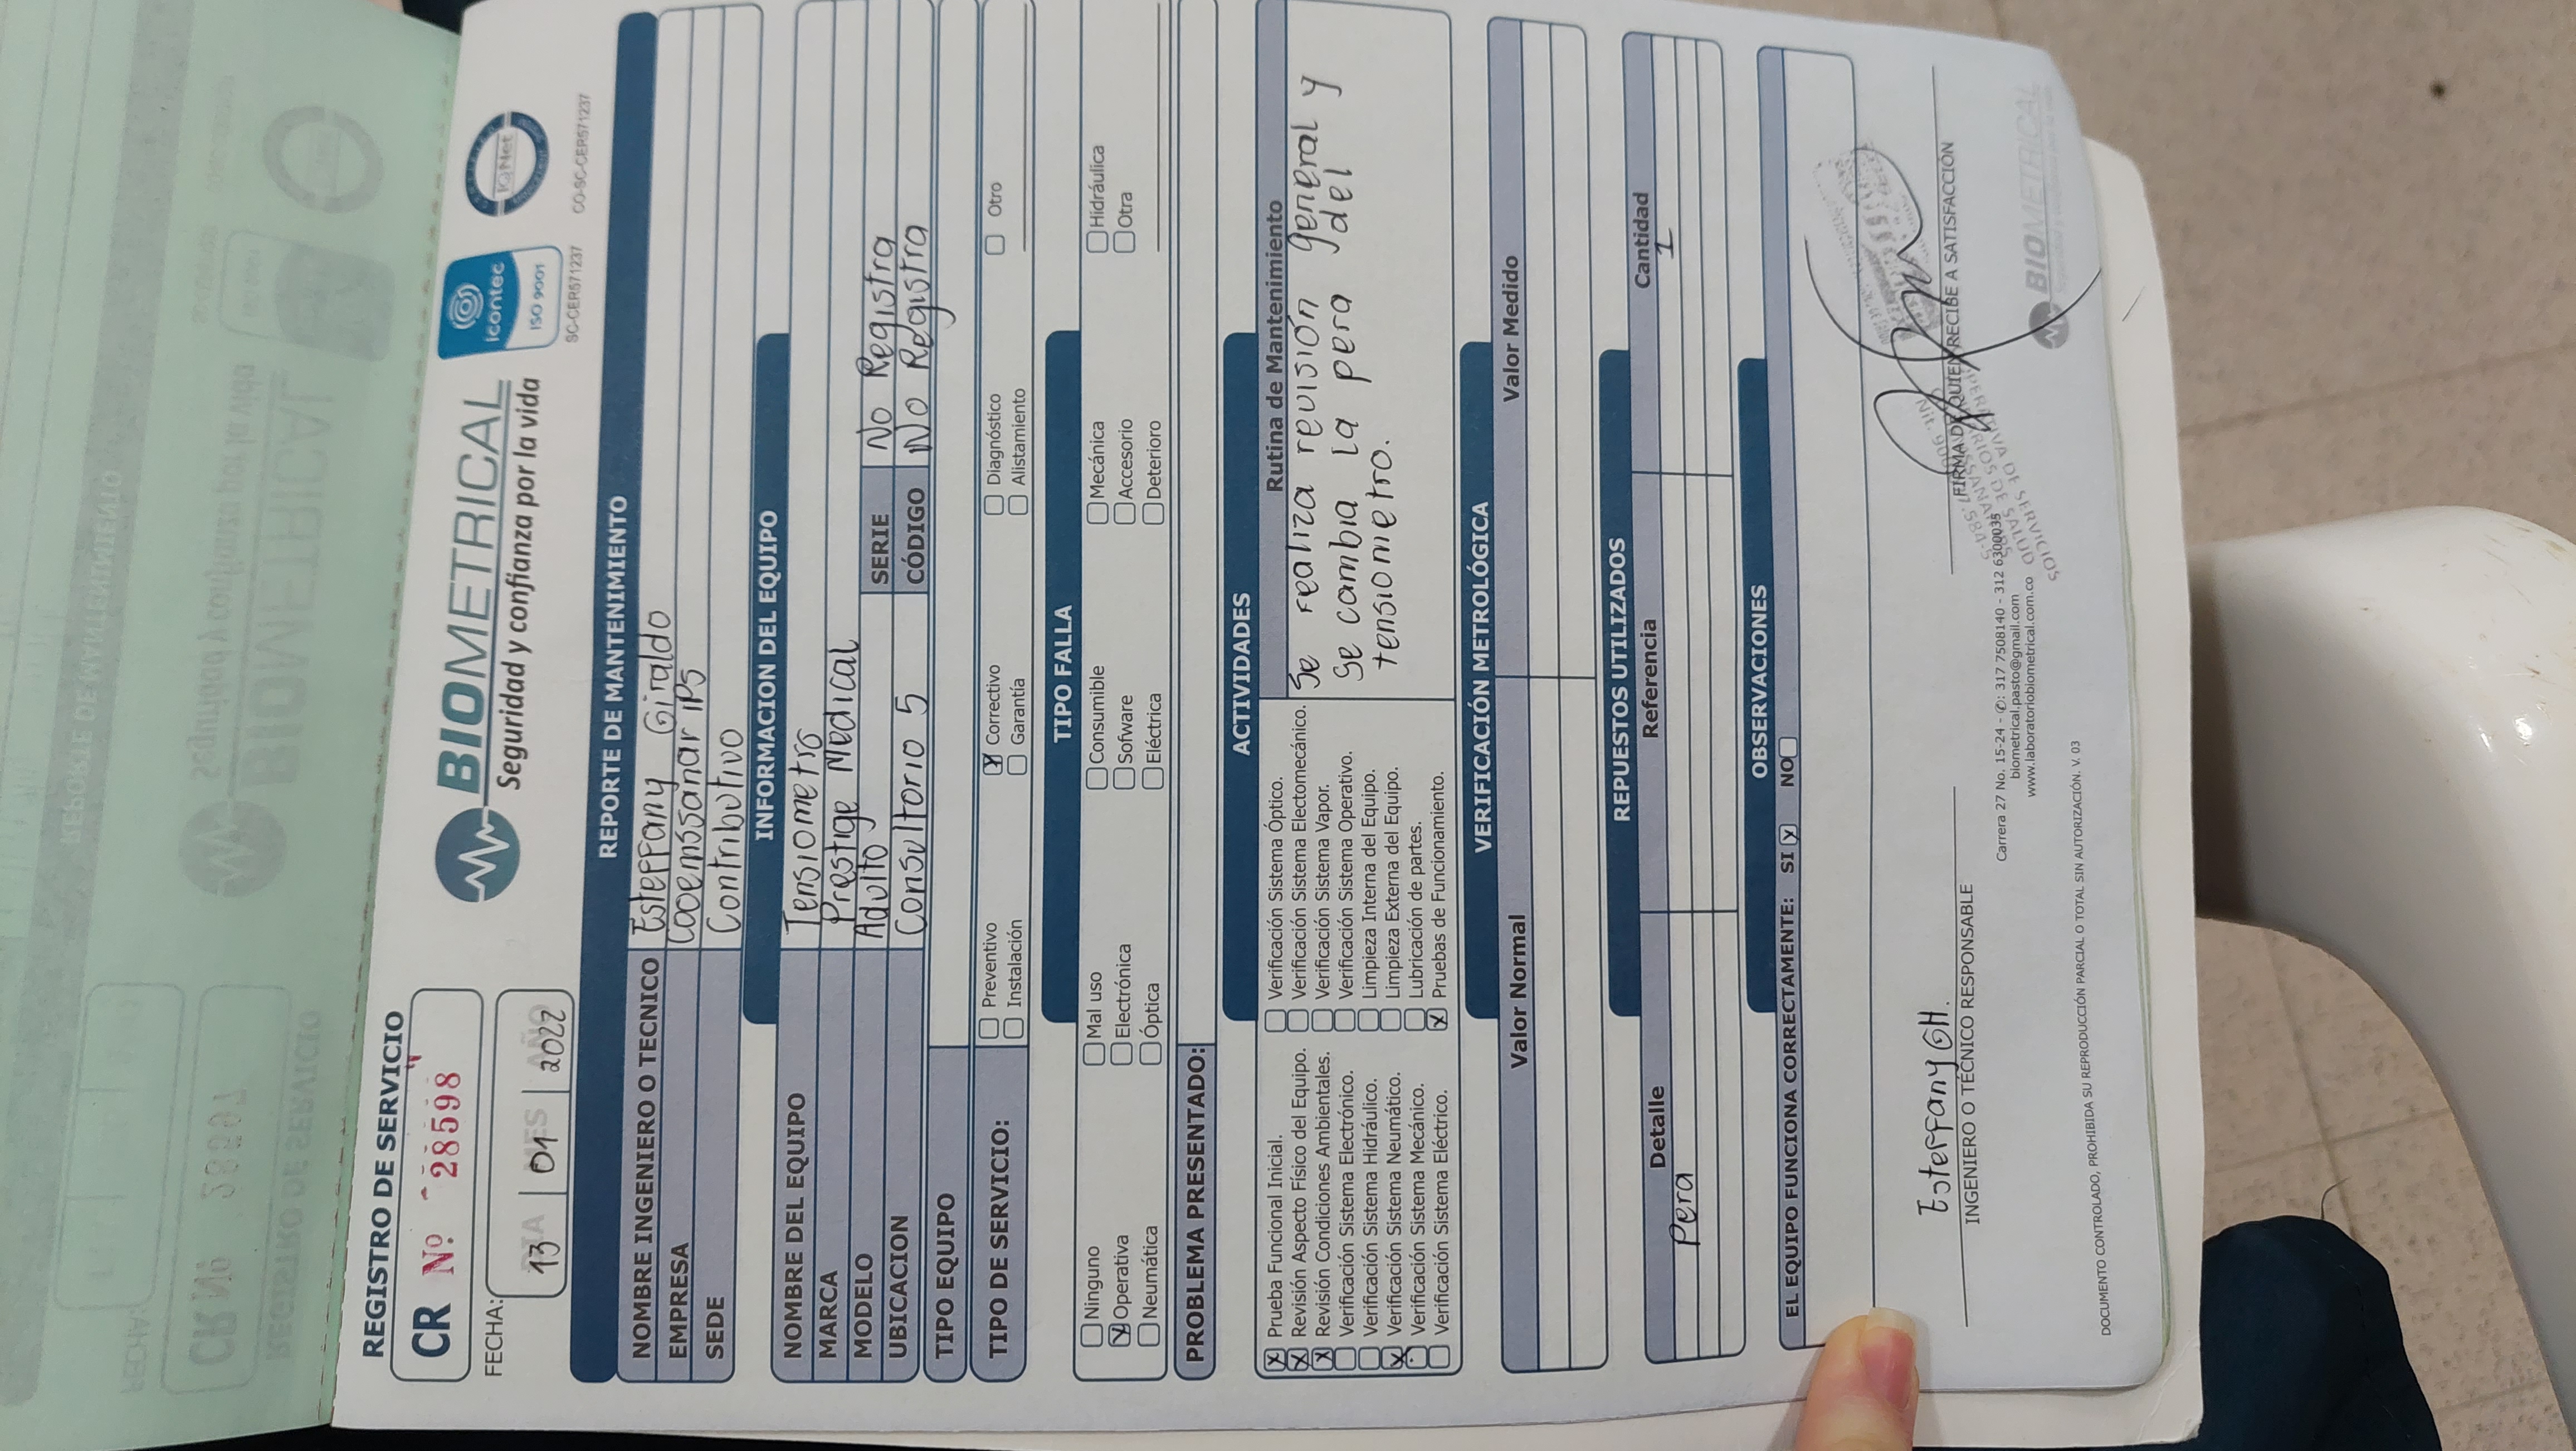 REPORTE DE MANTENIMIENTO
FECHA:
CR Nº 28597
Seguridad y confianza por la vida
BIOMETRICAL
REGISTRO DE SERVICIO
REGISTRO DE SERVICIO
CR Nº 28598
BIOMETRICAL
Seguridad y confianza por la vida
icontec
ISO 9001
SC-CER571237
IQNet
CO-SC-CER571237
FECHA:
DIA MES AÑO
13 01 2022
REPORTE DE MANTENIMIENTO
NOMBRE INGENIERO O TECNICO Esteffany Giraldo
EMPRESA Cooemssanar iPS
SEDE Contributivo
INFORMACION DEL EQUIPO
NOMBRE DEL EQUIPO Tensiometro
MARCA Prestige Medical
MODELO Adulto SERIE No Registra
UBICACION Consultorio 5 CÓDIGO No Registra
TIPO EQUIPO
TIPO DE SERVICIO: Preventivo X Correctivo Diagnóstico Otro
Instalación Garantía Alistamiento
TIPO FALLA
Ninguno Mal uso Consumible Mecánica Hidráulica
X Operativa Electrónica Sofware Accesorio Otra
Neumática Óptica Eléctrica Deterioro
PROBLEMA PRESENTADO:
ACTIVIDADES
X Prueba Funcional Inicial.
X Revisión Aspecto Físico del Equipo.
X Revisión Condiciones Ambientales.
Verificación Sistema Electrónico.
Verificación Sistema Hidráulico.
X Verificación Sistema Neumático.
Verificación Sistema Mecánico.
Verificación Sistema Eléctrico.
Verificación Sistema Óptico.
Verificación Sistema Electomecánico.
Verificación Sistema Vapor.
Verificación Sistema Operativo.
Limpieza Interna del Equipo.
Limpieza Externa del Equipo.
Lubricación de partes.
X Pruebas de Funcionamiento.
Rutina de Mantenimiento
Se realiza revisión general y
se cambia la pera del
tensiometro.
VERIFICACIÓN METROLÓGICA
Valor Normal Valor Medido
REPUESTOS UTILIZADOS
Detalle Referencia Cantidad
Pera 1
OBSERVACIONES
EL EQUIPO FUNCIONA CORRECTAMENTE: SI X NO
Esteffany GH.
INGENIERO O TÉCNICO RESPONSABLE
FIRMA DE QUIEN RECIBE A SATISFACCIÓN
Carrera 27 No. 15-24 - ✆: 317 7508140 - 312 6300035
biometrical.pasto@gmail.com
www.laboratoriobiometrical.com.co
BIOMETRICAL
Seguridad y confianza por la vida
DOCUMENTO CONTROLADO, PROHIBIDA SU REPRODUCCIÓN PARCIAL O TOTAL SIN AUTORIZACIÓN. V. 03